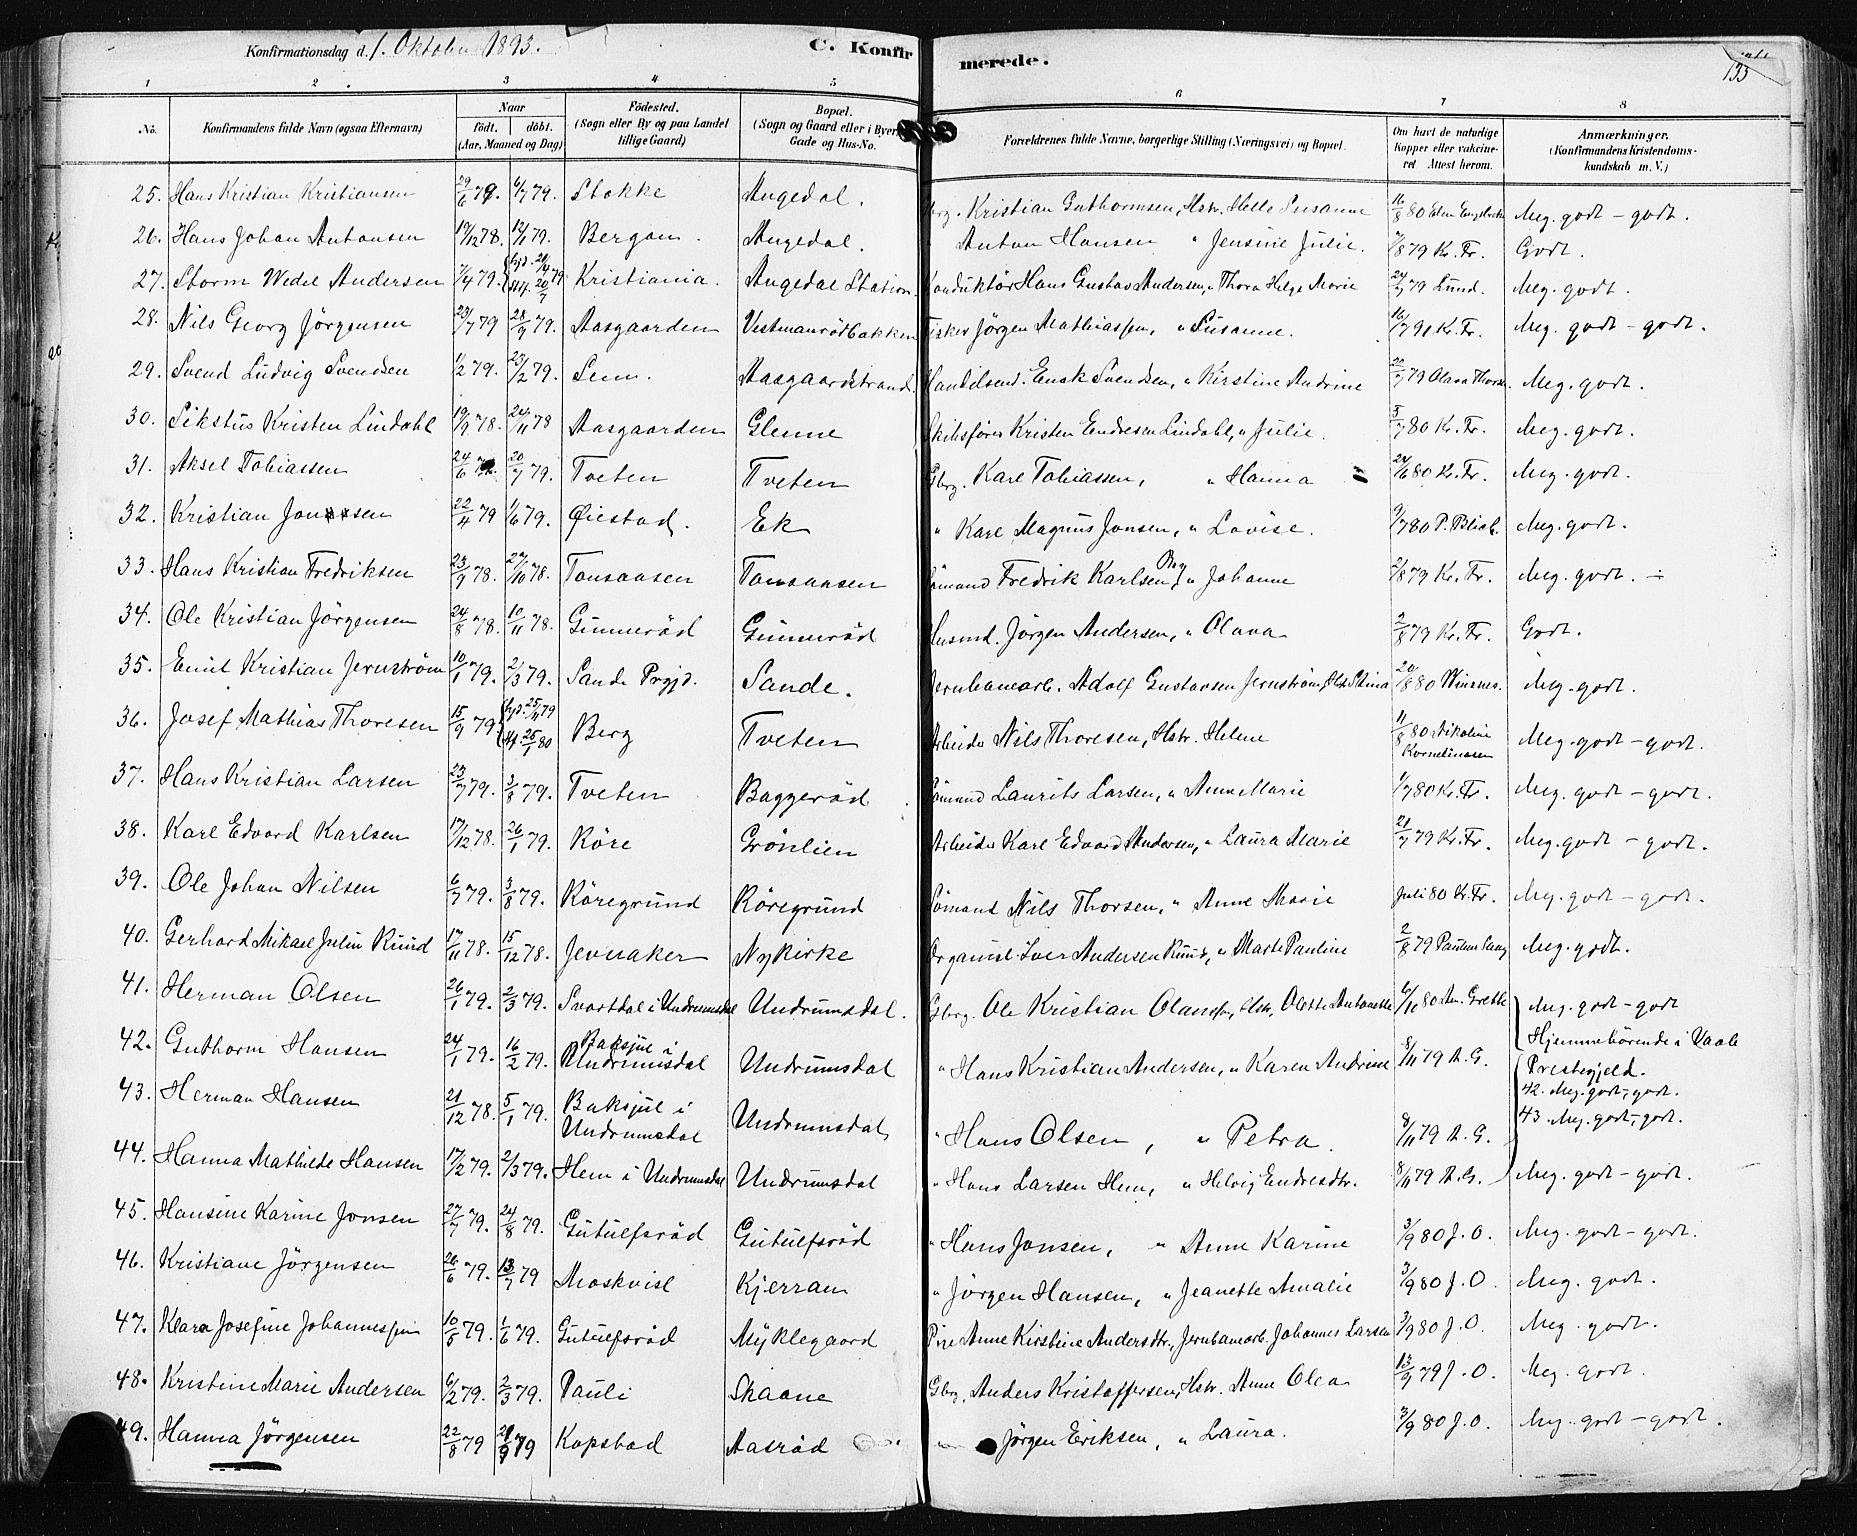 Konfirmationsdag d. 1. Oktober 1893. C. Konfirmerede. 133
1 2 3 4 5 6 7 8
No. Konfirmandens fulde Navn (ogsaa Efternavn) Naar födt. döbt. (Aar, Maaned og Dag) Födested. (Sogn eller By og paa Landet tillige Gaard) Bopæl. (Sogn og Gaard eller i Byer Gade og Hus-No. Forældrenes fulde Navne, borgerlige Stilling (Næringsvei) og Bopæl. Om havt de naturlige Kopper eller vakcineret Attest herom. Anmærkninger. (Konfirmandens Kristendomskundskab m. V.)
25. Hans Kristian Kristiansen 29/6 79 6/7 79. Stokke Augedal. Gbrg. Kristian Guthormsen, Hstr. Helle Susanne 16/8 80 Meg. godt - godt.
26. Hans Johan Antonsen 19/12 78. 12/1 79. Bergan. Augedal. " Anton Hansen " Jensine Julie. 7/8 79 Kr. Fr. Godt.
27. Storm Wedel Andersen 7/4 79. Kristiania. Augedal Station. Konduktör Hans Gustav Andersen, " Thora Helge Marie 24/7 79 Lund. Meg. godt.
28. Nils Georg Jörgensen 23/7 79 28/9 79. Aasgaarden Vestmanrödbakken Fisker Jörgen Mathiassen, " Susanne. 16/7 91 Kr. Fr. Meg. godt - godt.
29. Svend Ludvig Svendsen 1/2 79. 23/2 79. Sem. Aasgaardstrand. Handelsend. Enok Svendsen, " Kirstine Andrine 22/7 79 Olava Thorsen. Meg. godt.
30. Sikstus Kristen Lindahl 19/9 78. 24/11 78 Aasgaarden Glenne Skibsförer Kristen Endresen Lindahl, " Julie. 5/7 80 Kr. Fr. Meg. godt.
31. Aksel Tobiassen 24/6 20/7 79. Tveten Tveten Gbrg. Karl Tobiassen, " Hanna 24/6 80 Kr. Fr. Meg. godt.
32. Kristian Jonsen 22/4 79 1/6 79. Öiestad. Ek " Karl Magnus Jonsen, " Lovise. 9/7 80 P. Bliab. Meg. godt.
33. Hans Kristian Fredriksen 23/9 78. 27/10 78. Tonsaasen Tonsaasen Sömand Fredrik Karlsen Berg, " Johanne 2/8 79 Kr. Fr. Meg. godt. ÷
34. Ole Kristian Jörgensen 24/8 78. 10/11 78. Gunneröd Gunneröd Husmd. Jörgen Andersen, " Olava 2/8 79 Kr. Fr. Godt.
35. Emil Kristian Jernström 10/1 79. 2/3 79. Sande Prgjd. Sande. Jernbanearb. Adolf Gustavsen Jernström, Hstr Stina 20/8 80 Winsnes. Meg. godt.
36. Josef Mathias Thoresen 15/9 79 hjd. 25/11 79 stf. 25/1 80 Berg Tveten Arbeider Nils Thoresen, Hstr. Helene 11/8 80 Nikoline Kornelinssen Meg. godt - godt.
37. Hans Kristian Larsen 23/7 79. 3/8 79. Tveten Baggeröd Sömand Laurits Larsen, " Anne Marie 1/7 80 Kr. Fr. Meg. godt - godt.
38. Karl Edvard Karlsen 17/12 78. 26/1 79. Röre Grönlien Arbeider Karl Edvard Andersen, " Laura Marie 21/7 79 Kr. Fr. Meg. godt - godt.
39. Ole Johan Nilsen 6/7 79. 3/8 79. Röregrund Röregrund Sömand Nils Thorsen, " Anne Marie Juli 80 Kr. Fr. Meg. godt - godt.
40. Gerhard Mikael Julin Ruud 17/11 78. 15/12 78. Jevnaker Nykirke Organist Iver Andersen Ruud, " Marte Pauline 2/8 79 Meg. godt.
41. Herman Olsen 26/1 79. 2/3 79. Svartdal i Undrumsdal Undrumsdal. Gbrg. Ole Kristian Olausen, Hstr. Olette Antonette 6/10 80 An. Grette Meg. godt - godt
Hjemmehörende i Vaale
42. Guthorm Hansen 24/1 79. 16/2 79. Baksjul i Undrumsdal Undrumsdal " Hans Kristian Andersen, " Karen Andrine 8/11 79 A. G. Prestegjeld.
42. Meg. godt, - godt.
43. Herman Hansen 21/12 78. 5/1 79. Baksjul i Undrumsdal Undrumsdal " Hans Olsen, " Petra. 8/11 79 A. G. 43 Meg. godt, - godt.
44. Hanna Mathilde Hansen 17/2 79. 2/3 79. Hem i Undrumsdal Undrumsdal " Hans Larsen Hem, " Helvig Endresdtr. 8/11 79 A. G. Meg. godt - godt.
45. Hansine Karine Jonsen 27/7 79. 24/8 79. Gutulfsröd Gutulfsröd " Hans Jonsen, " Anne Karine 3/9 80 J. O. Meg. godt - godt.
46. Kristiane Jörgensen 26/6 79. 13/7 79 Moskvisl Kjerran " Jörgen Hansen, " Jeanette Amalie 3/9 80 J. O. Meg. godt.
47. Klara Josefine Johannessen 10/5 79. 1/6 79. Gutulfsröd Myklegaard Pige Anne Kirstine Andersdtr., Jernbanearb. Johannes Larsen 3/9 80 J. O. Meg. godt.
48. Kristine Marie Andersen 6/2 79. 2/3 79. Pauli Skaane Gbrg. Anders Kristoffersen, Hstr. Anne Olea 13/9 79 J. O. Meg. godt.
49. Hanna Jörgensen 22/8 79 21/9 79 Kopstad Aasröd Jörgen Eriksen, " Laura. 3/9 80 J. O. Meg. godt - godt.